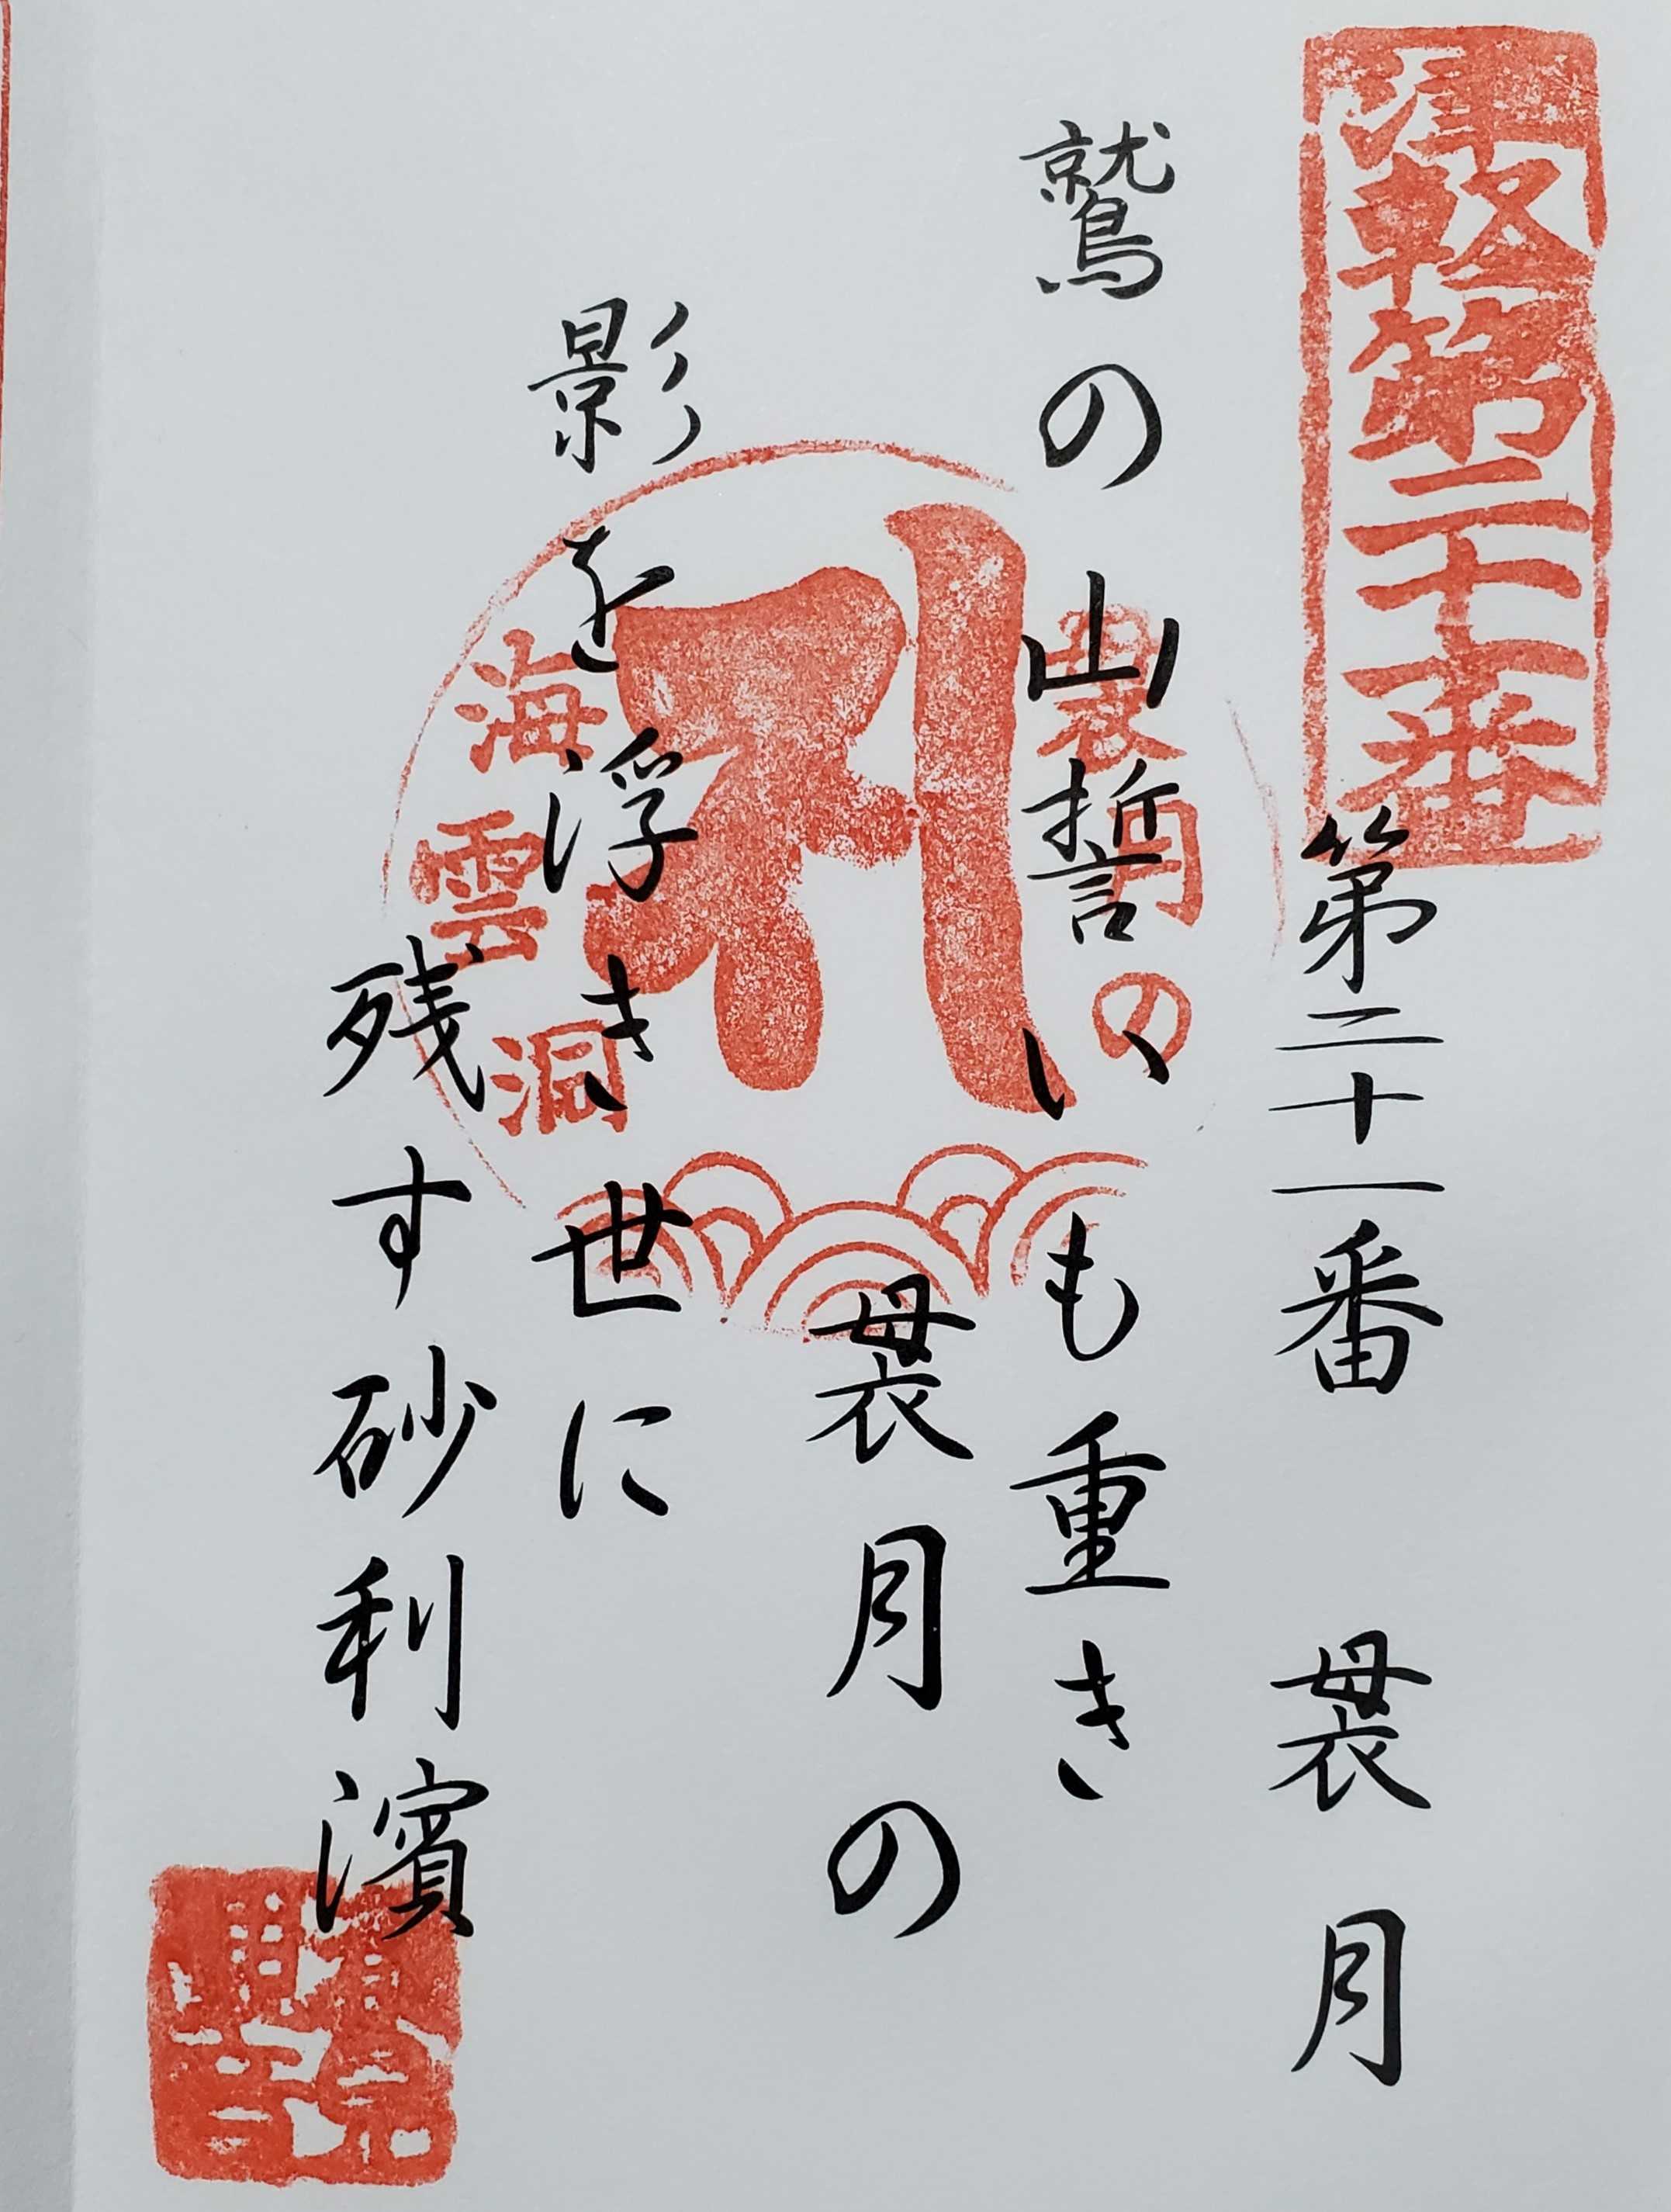 津軽第二十一番
第二十一番 袰月
鷲の山誓いも重き
袰月の
影を浮き世に
残す砂利濱
袰月の
海雲洞